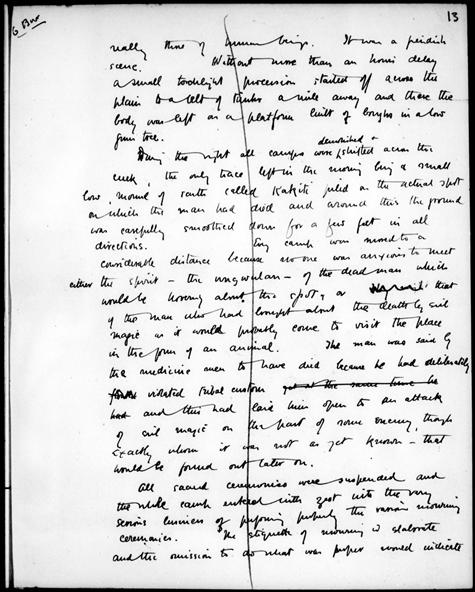 13
G Bur
really those of human beings. It was a fiendish
scene. Without more than an hour's delay
a small torchlight procession started off across the
plain to a belt of timber a mile away and there the
body was left on a platform built of boughs in a low
gum tree.
demolished &
During the night all camps were shifted across the
creek, the only trace left in the morning being a small
low, mound of earth called Kakiti piled on the actual spot
on which the man had died and around this the ground
was carefully smoothed down for a few feet in all
directions. camp was moved to a
considerable distance because no one was anxious to meet
either the spirit – the ungwulan – of the dead man which
would be hovering about the spot, or that
of the man who had brought about the death by evil
magic as it would probably come to visit the place
in the form of an animal. The man was said by
the medicine men to have died because he had deliberately
violated tribal custom yet at the same time he
had and this had laid him open to an attack
of evil magic on the part of some enemy, though
exactly whom it was not as yet known – that
would be found out later on.
All sacred ceremonies were suspended and
the whole camp entered with zest into the very
serious business of performing properly the various mourning
ceremonies. The etiquette of mourning is elaborate
and the omission to do what was proper would indicate